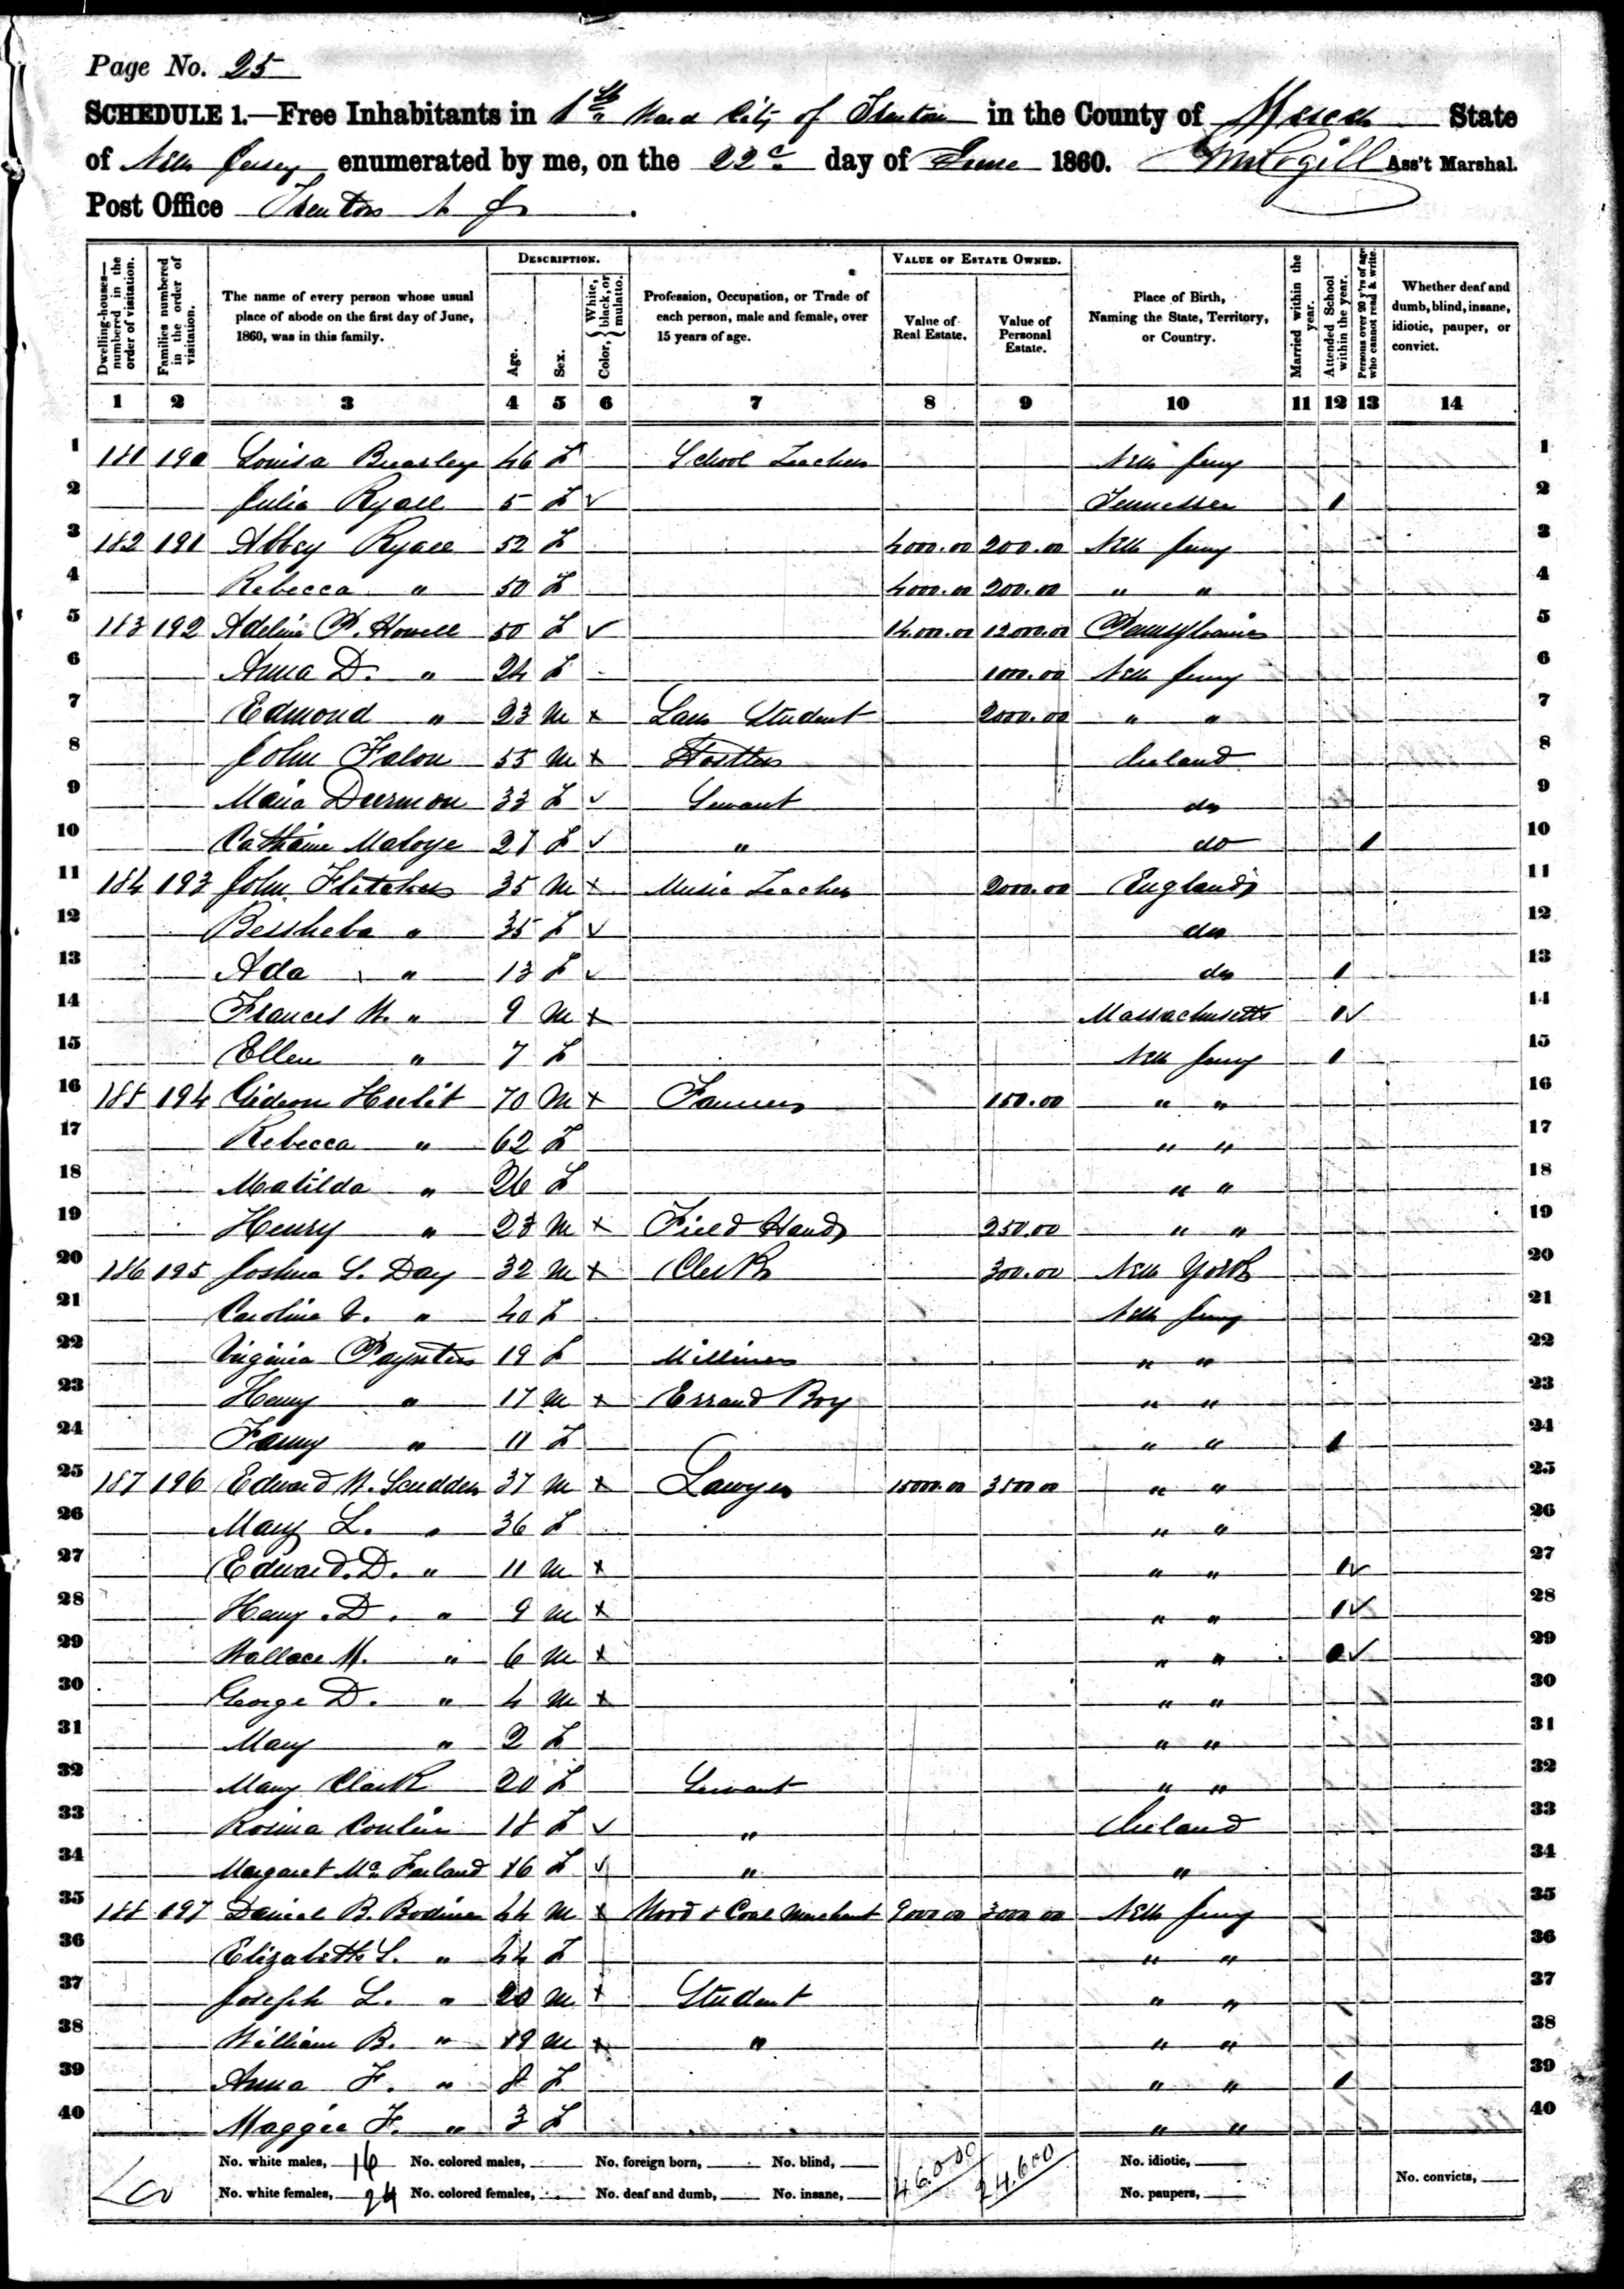 Page No. 25
SCHEDULE 1.—Free Inhabitants in 1st Ward City of Trenton in the County of Mercer State
of New Jersey enumerated by me, on the 22d day of June 1860. Ass't Marshal.
Post Office Trenton N J
Dwelling-houses—numbered in the order of visitation.
Families numbered in the order of visitation.
The name of every person whose usual place of abode on the first day of June, 1860, was in this family.
DESCRIPTION.
Age.
Sex.
Color, White, black, or mulatto.
Profession, Occupation, or Trade of each person, male and female, over 15 years of age.
VALUE OF ESTATE OWNED.
Value of Real Estate.
Value of Personal Estate.
Place of Birth, Naming the State, Territory, or Country.
Married within the year.
Attended School within the year.
Persons over 20 y'rs of age who cannot read & write.
Whether deaf and dumb, blind, insane, idiotic, pauper, or convict.
1 2 3 4 5 6 7 8 9 10 11 12 13 14
1 181 190 Louisa Beasley 46 F School Teacher New Jersey 1
2 Julia Ryall 5 F ✓ Tennessee 1 2
3 182 191 Abbey Ryall 52 F 4000.00 200.00 New Jersey 3
4 Rebecca " 50 F 4000.00 200.00 " " 4
5 183 192 Adeline P. Howell 50 F ✓ 14000.00 12000.00 Pennsylvania 5
6 Anna D. " 24 F 1000.00 New Jersey 6
7 Edmond " 23 M x Law Student 2000.00 " " 7
8 John Falon 55 M x Hostler Ireland 8
9 Maria Deermon 33 F ✓ Servant do 9
10 Cathaine Maloye 27 F ✓ " do 1 10
11 184 193 John Fletcher 35 M x Music Teacher 2000.00 England 11
12 Bersheba " 35 F ✓ do 12
13 Ada " 13 F ✓ do 1 13
14 Frances W. " 9 M x Massachusetts 1✓ 14
15 Ellen " 7 F New Jersey 1 15
16 185 194 Gideon Hulit 70 M x Farmer 150.00 " " 16
17 Rebecca " 62 F " " 17
18 Matilda " 26 F " " 18
19 Henry " 23 M x Field Hand 250.00 " " 19
20 186 195 Joshua S. Day 32 M x Clerk 300.00 New York 20
21 Caroline V. " 40 F New Jersey 21
22 Virginia Paynter 19 F Milliner " " 22
23 Henry " 17 M x Errand Boy " " 23
24 Fanny " 11 F " " 1 24
25 187 196 Edward W. Scudder 37 M x Lawyer 15000.00 3500 00 " " 25
26 Mary L. " 36 F " " 26
27 Edward. D. " 11 M x " " 1✓ 27
28 Henry . D. " 9 M x " " 1✓ 28
29 Wallace M. " 6 M x " " 1✓ 29
30 George D. " 4 M x " " 30
31 Mary " 2 F " " 31
32 Mary Clark 20 F Servant " " 32
33 Rosina Conlin 18 F ✓ " Ireland 33
34 Margaret Mc Farland 16 F ✓ " " 34
35 188 197 Daniel B. Bodine 44 M x Wood & Coal Merchant 9000 00 3000 00 New Jersey 35
36 Elizabeth S. " 44 F " " 36
37 Joseph L. " 20 M x Student " " 37
38 William B. " 19 M x " " " 38
39 Anna F. " 8 F " " 1 39
40 Maggie F. " 3 F " " 40
No. white males, 16 No. colored males, No. foreign born, No. blind, 46.000 24.600 No. idiotic,
No. white females, 24 No. colored females, No. deaf and dumb, No. insane, No. paupers, No. convicts,